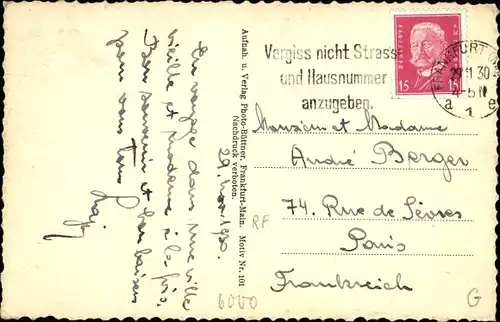 En voyage dans une ville
vieille et moderne à la fois.
Bon souvenir et bon baisers
pour vous tous
29. Nov. 1930.
Aufnah. u. Verlag Photo-Büttner, Frankfurt-Main. Motiv Nr. 101
Nachdruck verboten.
Vergiss nicht Strasse
und Hausnummer
anzugeben.
FRANKFURT
29.11.30
4-5 N
a e
1
15 15
Monsieur et Madame
André Berger
74. Rue de Sèvres
Paris
Frankreich
RF
6000
G